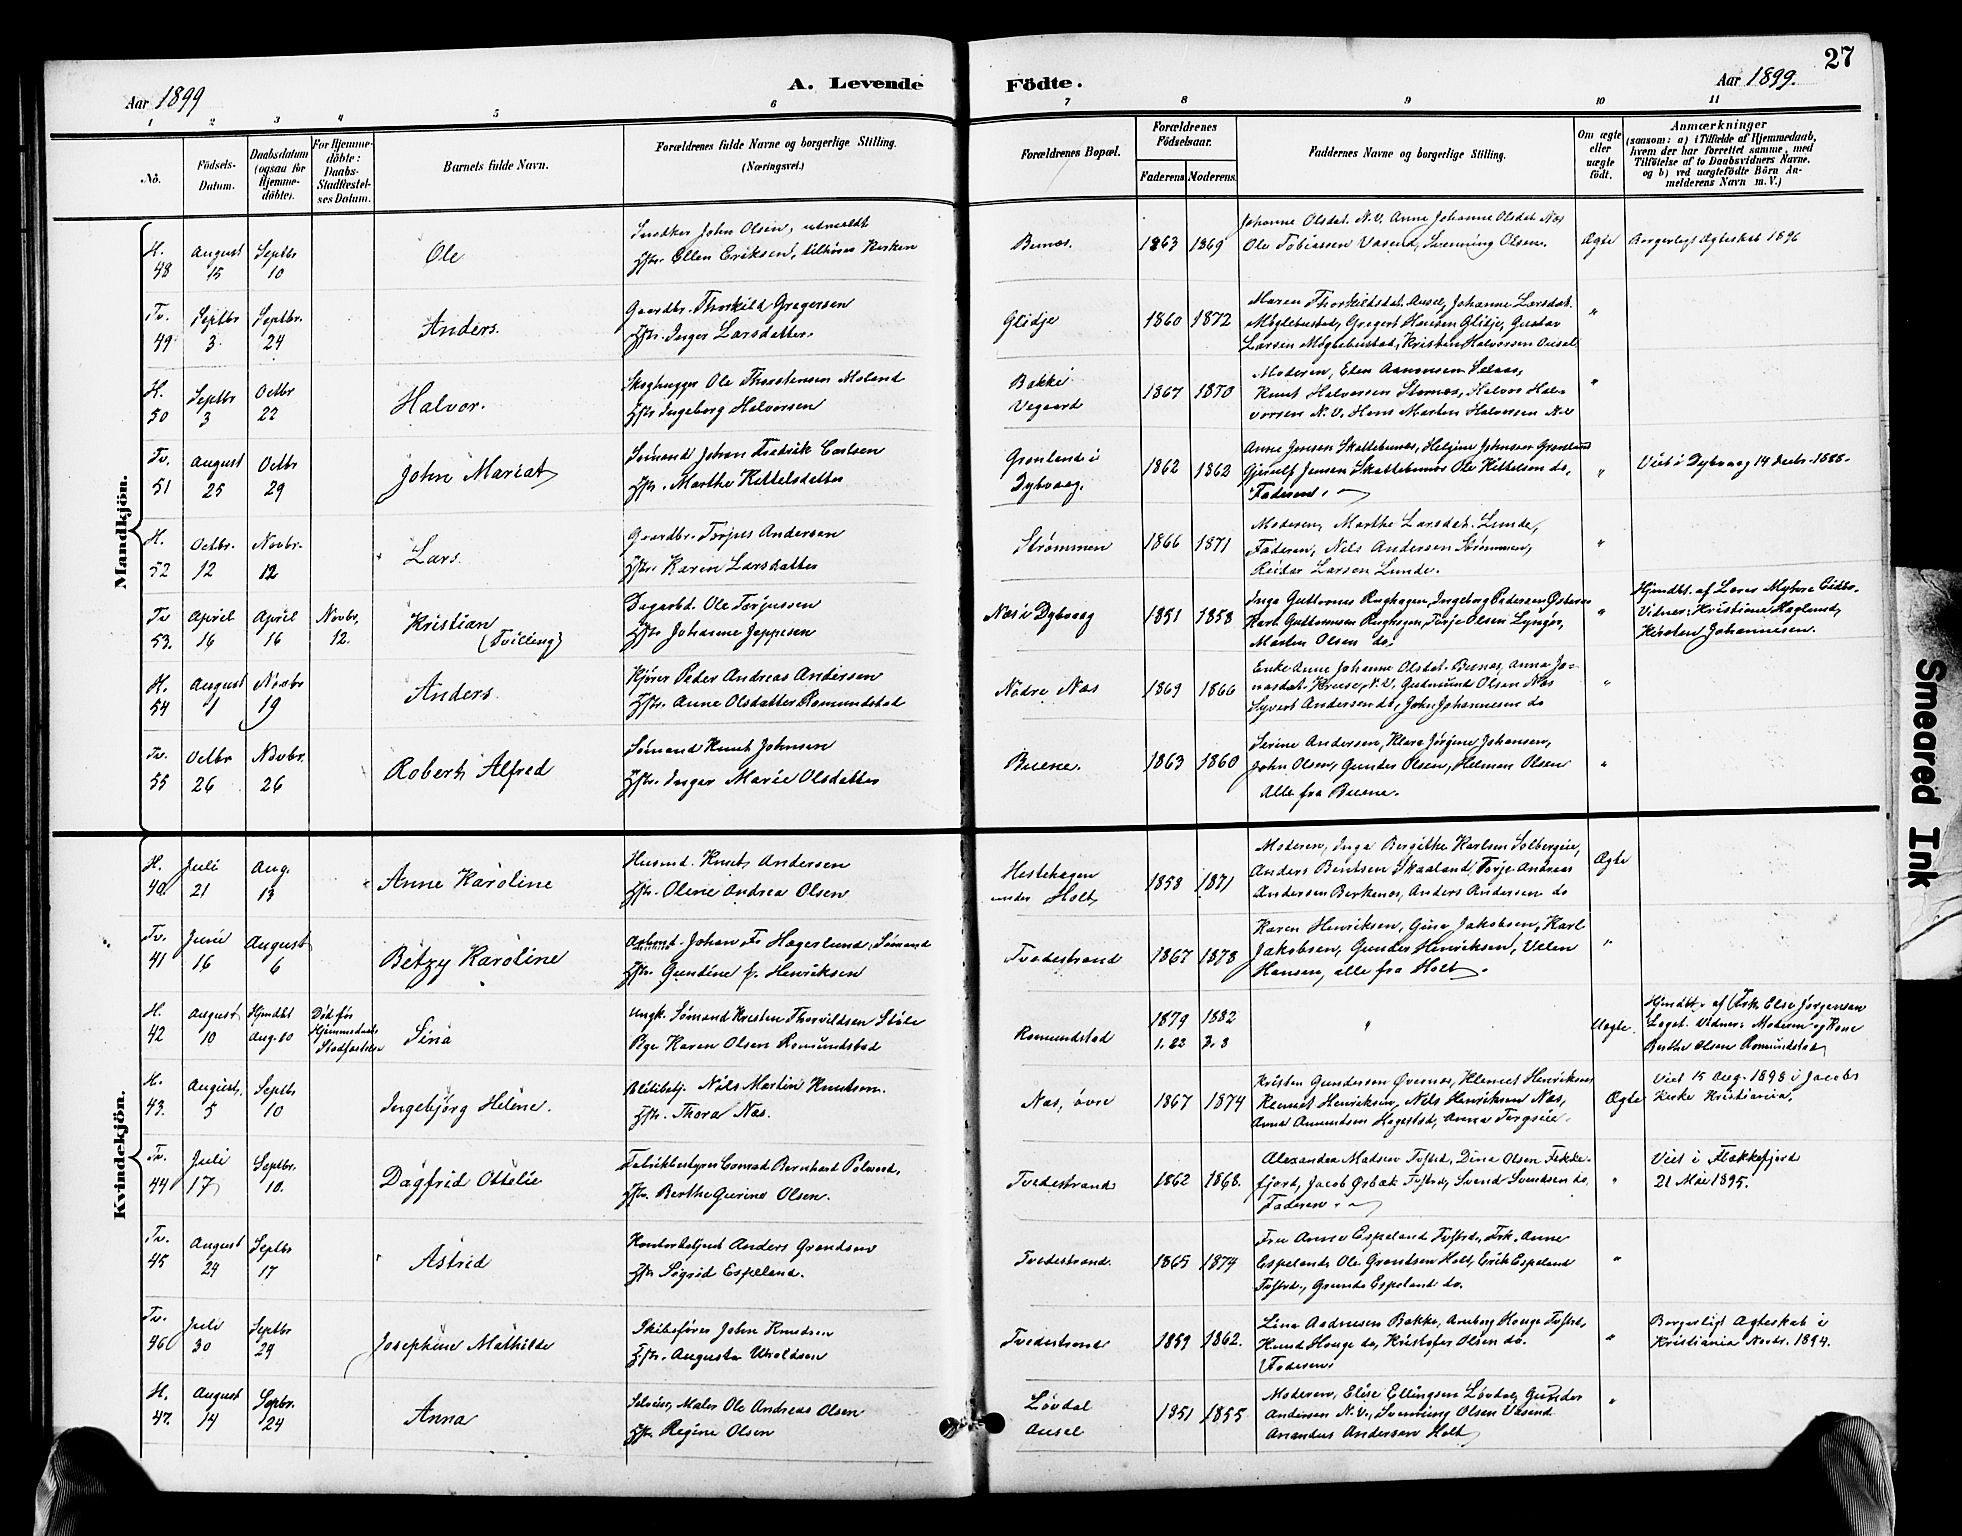 27
Aar 1899
A. Levende Födte.
Aar 1899.
1 2 3 4 5 6 7 8 9 10 11
No.
Födsels-Datum.
Daabsdatum (ogsaa for Hjemme-döbte).
For Hjemme-döbte: Daabs-Stadfæstel-ses Datum.
Barnets fulde Navn.
Forældrenes fulde Navne og borgerlige Stilling. (Næringsvei.)
Forældrenes Bopæl.
Forældrenes Födselsaar.
Faderens Moderens.
Faddernes Navne og borgerlige Stilling.
Om ægte eller uægte födt.
Anmærkninger
(saasom: a) i Tilfælde af Hjemmedaab, hvem der har forrettet samme, med Tilföielse af to Daabsvidners Navne, og b) ved uægtefödte Börn An-melderens Navn m. V.)
Mandkjön.
H. 48 August 15 Septbr 10 Ole
Snedker John Olsen, udmeldt
Hstr. Ellen Eriksen, tilhører Kirken
Bunæs. 1863 1869
Johanne Olsdat. N.V. Anne Johanne Olsdat Næs
Ole Tobiassen Vasend, Svenning Olsen.
Ægte Borgerligt Ægteskab 1896
Tv. 49 Septbr 3 Septbr. 24 Anders.
Gaardbr. Thorkild Gregersen
Hstr. Inger Larsdatter.
Glidje 1860 1872
Maren Thorkildsdat. Ausel, Johanne Larsdat.
Møglebustad, Gregert Hansen Glidje, Gustav
Larsen Møglebustad, Kristen Halvorsen Ausel "
H. 50 Septbr 3 Octbr 22 Halvor.
Skoghugger Ole Thorstensen Moland
Hstr Ingeborg Halvorsen
Bakke Vegaard 1867 1870
Moderen, Elen Aanonsen Selaas,
Knut Halvorsen Stornæs, Halvor Hal-
vorsen N.V. Hans Martin Halvorsen N.V "
Tv. 51 August 25 Octbr 29 John Mariat
Sømand Johan Fredrik Carlsen
Hstr. Marthe Kittelsdatter
Grønland i Dybvaag. 1862 1862
Anne Jensen Skattebunæs, Helgine Johnsen Grønland
Gjerulf Jensen Skattebunæs Ole Kittelsen do,
Faderen.
" Viet i Dybvaag 14 Decbr. 1888.
H. 52 Octbr. 12 Novbr. 12 Lars.
Gaardbr. Torjus Andersen
Hstr. Karen Larsdatter
Strømmen 1866 1871
Moderen, Marthe Larsdat. Lunde,
Faderen, Nils Andersen Strømmen,
Reidar Larsen Lunde. "
Tv 53. April 16 April 16 Novbr. 12. Kristian
(Tvilling)
Dagarbd. Ole Torjussen
Hstr Johanne Jeppesen
Næs i Dybvaag 1851 1858
Inga Guttormsen Røghagen, Ingeborg Pedersen
Karl Guttormsen Røghagen, Torje Olsen Lyngør,
Marten Olsen do. "
Hjmdbt. af Lars Myhre
Vidner: Kristine Haglund,
Kirsten Johannesen.
H. 54 August 1 Novbr 19 Anders.
Kjører Peder Andreas Andersen
Hstr. Anne Olsdatter Romundstad
Nedre Næs 1869 1866
Enke Anne Johanne Olsdat. Bunæs, Anna Jo-
nasdat. N.V. Gudmund Olsen Næs
Syvert Andersen do, John Johannesen do "
Tv. 55 Octbr 26 Novbr. 26 Robert Alfred
Sømand Knut Johnsen
Hstr. Inger Marie Olsdatter
Buene. 1863 1860
Serine Andersen, Klara Jørgine Johansen,
John Olsen, Gunder Olsen, Helman Olsen
Alle fra Buene. "
Kvindekjön.
H. 40. Juli 21 Aug. 13 Anne Karoline
Husmd. Knut Andersen
Hstr. Oline Andrea Olsen
Hestehagen under Holt 1858 1871
Moderen, Inga Bergithe Karlsen Solbergeie,
Anders Bentsen Skaaland, Torje Andreas
Andersen Berkenes, Anders Andersen do Ægte
Tv. 41 Juni 16 August 6 Betzy Karoline
Arbmd. Johan Fr Hagerlund, Sømand
Hstr. Gundine f. Henriksen
Tvedestrand 1867 1878
Karen Henriksen, Gina Jakobsen, Karl
Jakobsen, Gunder Henriksen,
Hansen, alle fra Holt. "
H. 42 August 10 Hjmdbt Aug. 10 Død før Hjemmedaab Stadfæstelse Sina
Ungk. Sømand Kresten Thorvildsen Støle
Pige Karen Olsen Romundstad
Romundstad 1879 1882
"
Uægte.
Hjmdbt. af Frk. Else Jørgensen
Laget. Vidner: Moderen og Kone
Berthe Olsen Romundstad
H. 43. August. 5 Septbr 10 Ingebjørg Helene.
Nils Martin Knutsen.
Hstr. Thora Næs.
Næs, øvre 1867 1874
Kristen Gundersen Øvernæs, Klemet Henriksen
Henriksen, Nils Henriksen Næs,
Anna Amundsen Hagestad, Anna Torgseie. Ægte
Viet 15 Aug. 1898 i Jacobs
Kirke Kristiania.
Tv. 44 Juli 17 Septbr. 10. Dagfrid Ottelie
Fabrikbestyrer Conrad Bernhart
Hstr. Berthe Gurine Olsen.
Tvedestrand 1862 1868.
Alexander Madsen Tvstrd, Dina Olsen Flekke-
fjord, Jacob Ørbæk Tvstrd, Svend Svendsen do.
Faderen.
" Viet i Flækkefjord
21 Mai 1895.
Tv. 45 August 24 Septbr 17 Astrid
Kontorbetjent Anders Grandsen
Hstr Sigrid Espeland.
Tvedestrand. 1865 1874
Fru Anna Espeland Tvstrd, Frk. Anne
Espeland, Ole Grandsen Holt, Erik Espeland
Tvstrd., Gunda Espeland do. "
Tv. 46 Juli 30 Septbr 24 Josephine Mathilde
Skibsfører John Knudsen
Hstr. Augusta
Tvedestrand 1859 1862.
Lina Andresen Bakke, Houge Tvstrd,
Knud Houge do, Kristofer Olsen do.
Faderen.
" Borgerligt Ægteskab i
Kristiania Novbr. 1894.
H. 47. August 14 Sepbr. 24 Anna
Maler Ole Andreas Olsen
Hstr. Regine Olsen
Løvdal Ausel 1851 1855
Moderen, Elise Ellingsen Løvdal, Gunder
Andersen N.V., Svenning Olsen Vasend
Anders Andersen Holt "
Smeared Ink